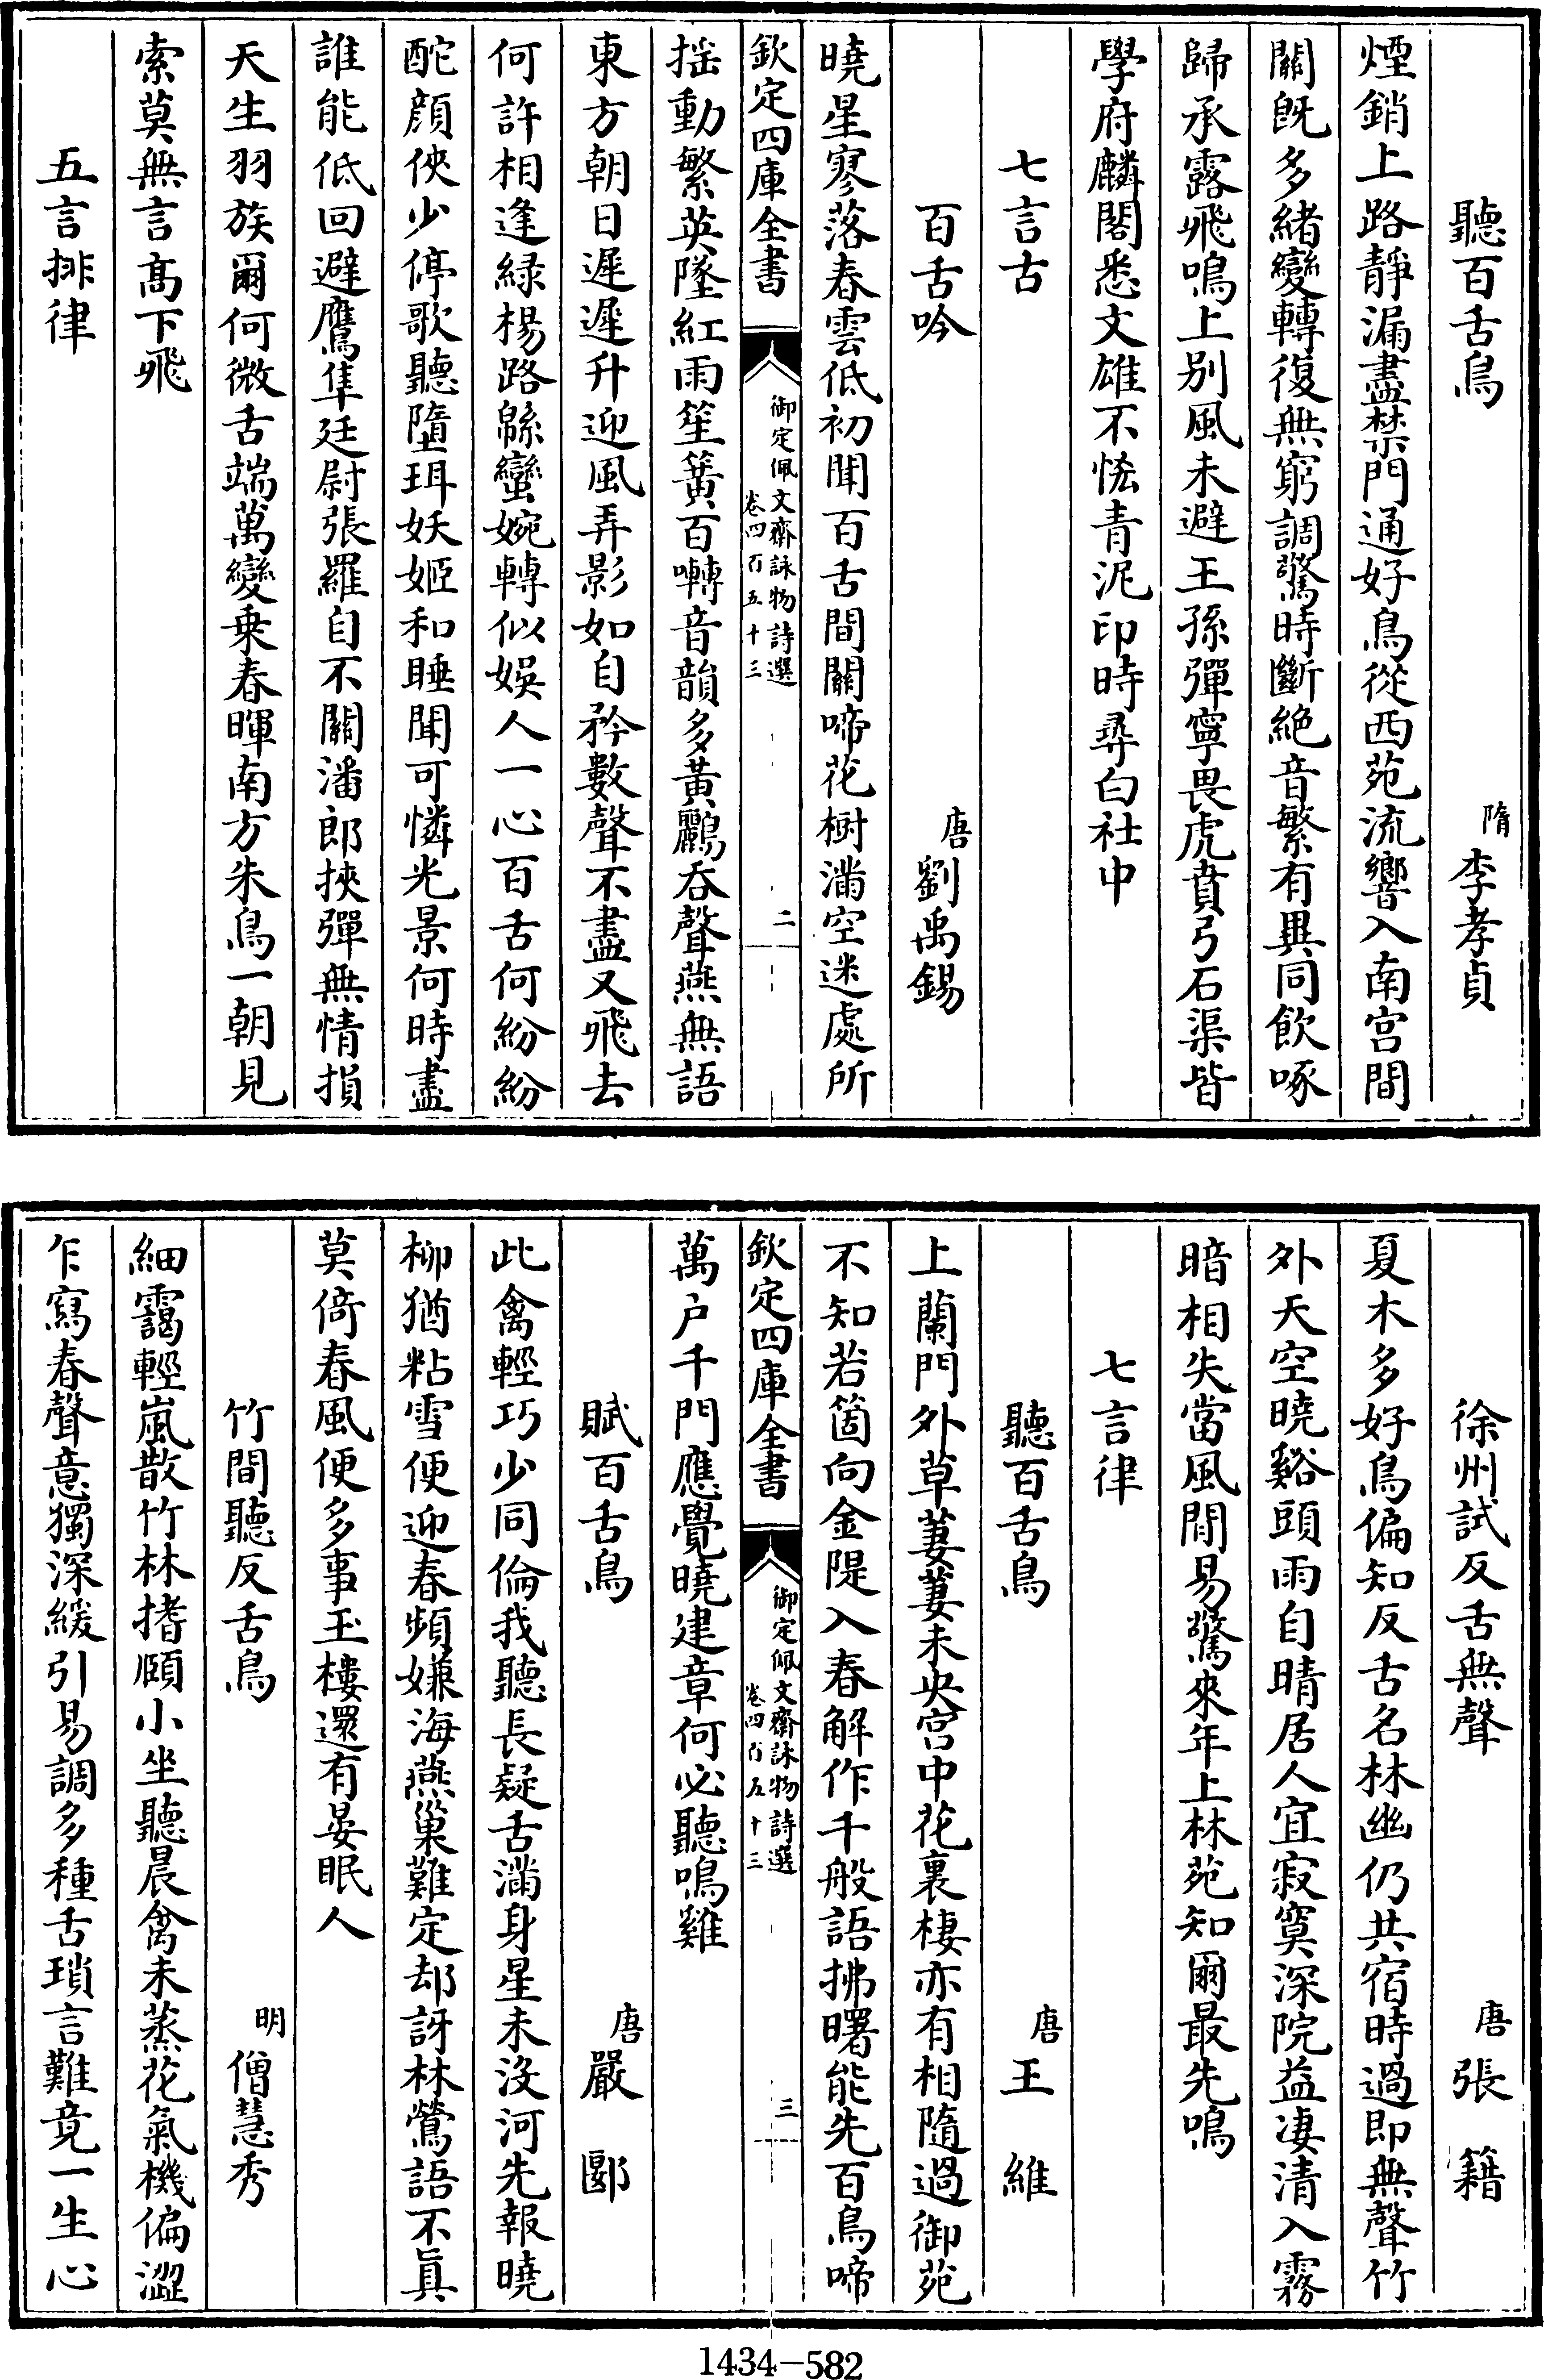 聽百舌鳥　隋李孝貞
煙銷上路靜漏盡禁門通好鳥從西苑流響入南宫間
關旣多緒變轉復無窮調驚時斷絶音繁有異同飲啄
歸承露飛鳴上别風未避王孫彈寧畏虎賁弓石渠皆
學府麟閣悉文雄不恡青泥印時尋白社中
七言古
百舌吟　唐劉禹錫
曉星寥落春雲低初聞百舌間關啼花樹滿空迷處所
欽定四庫全書　御定佩文齋詠物詩選　卷四百五十三　二
揺動繁英墜紅雨笙簧百囀音韻多黄鸝吞聲燕無語
東方朝日遲遲升迎風弄影如自矜數聲不盡又飛去
何許相逢緑楊路緜蠻婉轉似娱人一心百舌何紛紛
酡顔俠少停歌聽墮珥妖姬和睡聞可憐光景何時盡
誰能低回避鷹隼廷尉張羅自不關潘郎挾彈無情損
天生羽族爾何微舌端萬變乗春暉南方朱鳥一朝見
索莫無言髙下飛
五言排律
徐州試反舌無聲　唐張籍
夏木多好鳥偏知反舌名林幽仍共宿時過即無聲竹
外天空曉谿頭雨自晴居人宜寂寞深院益凄清入霧
暗相失當風閒易驚來年上林苑知爾最先鳴
七言律
聽百舌鳥　唐王維
上蘭門外草萋萋未央宫中花裏棲亦有相隨過御苑
不知若箇向金隄入春解作千般語拂曙能先百鳥啼
欽定四庫全書　御定佩文齋詠物詩選　卷四百五十三　三
萬户千門應覺曉建章何必聽鳴雞
賦百舌鳥　唐嚴郾
此禽輕巧少同倫我聽長疑舌滿身星未沒河先報曉
柳猶粘雪便迎春頻嫌海燕巢難定却訝林鶯語不眞
莫倚春風便多事玉樓還有晏眠人
竹間聽反舌鳥　明僧慧秀
細靄輕嵐散竹林搘頤小坐聽晨禽未蒸花氣機偏澀
乍寫春聲意獨深緩引易調多種舌瑣言難竟一生心
1434-582